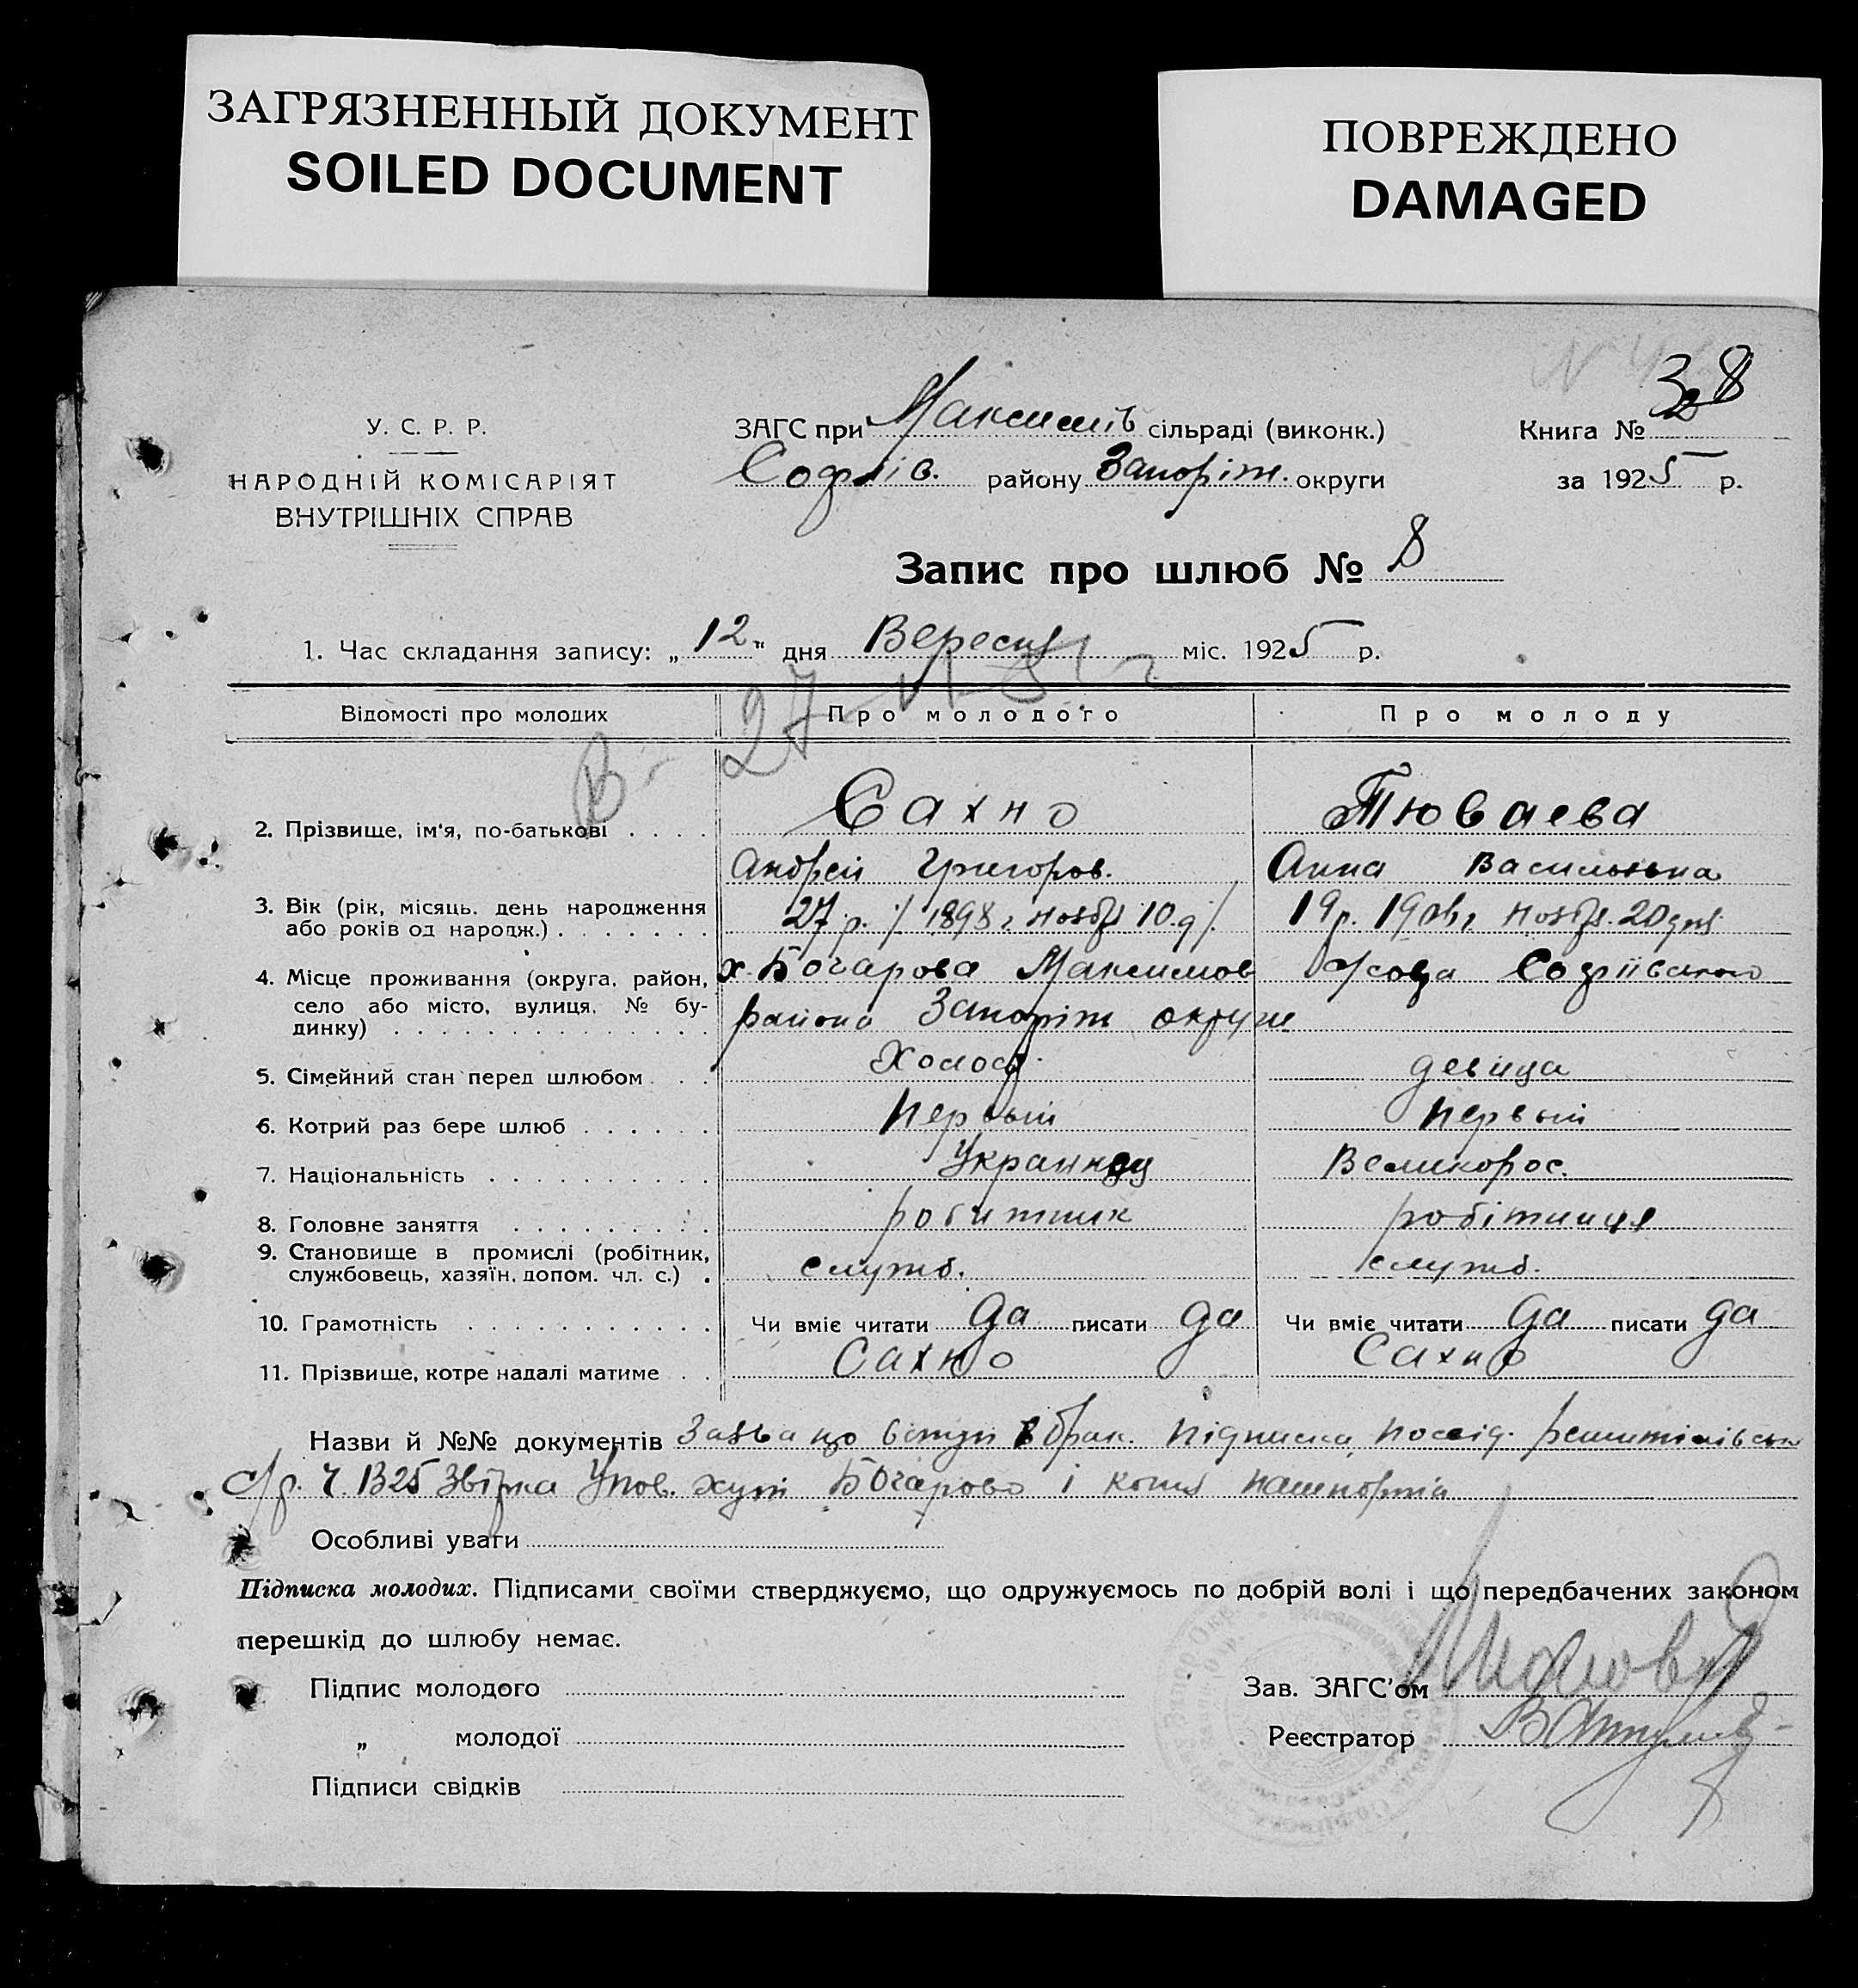 ЗАГРЯЗНЕННЫЙ ДОКУМЕНТ
SOILED DOCUMENT
ПОВРЕЖДЕНО
DAMAGED
У. С. Р. Р.
НАРОДНІЙ КОМІСАРІЯТ
ВНУТРІШНІХ СПРАВ
ЗАГС при Максимів сільраді (виконк.)
Софіїв. району Запоріж. округи
Книга № 38
за 1925 р.
Запис про шлюб № 8
1. Час складання запису: „12" дня Вересня міс. 1925 р.
Відомості про молодих Про молодого Про молоду
2. Прізвище, ім'я, по-батькові Сахно Тюваева
Андрей Григоров. Анна Васильевна
3. Вік (рік, місяць, день народження або років од народж.) 27 р. 1898 г. ноября 10 д. 19 р. ноябр. 20 дня
4. Місце проживання (округа, район, село або місто, вулиця, № будинку) х. Бочарова Максимов Софіївського
района Запоріж округи
5. Сімейний стан перед шлюбом Холост девица
6. Котрий раз бере шлюб первый первый
7. Національність Украинец Великорос.
8. Головне заняття робитник робітниця
9. Становище в промислі (робітник, службовець, хазяїн, допом. чл. с.) служб. служб.
10. Грамотність Чи вміє читати да писати да Чи вміє читати да писати да
11. Прізвище, котре надалі матиме Сахно Сахно
Назви й №№ документів Заява що вступ в брак. підписка, посвід.
с/р. Упов. хут Бочарово і копия пашпорта
Особливі уваги
Підписка молодих. Підписами своїми стверджуємо, що одружуємось по добрій волі і що передбачених законом
перешкід до шлюбу немає.
Підпис молодого
„ молодої
Підписи свідків
Зав. ЗАГС'ом
Реєстратор